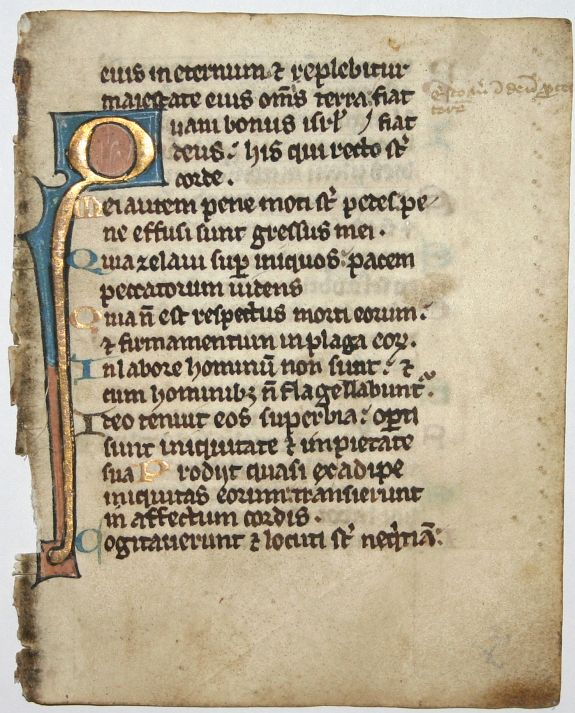 eius in eternum ⁊ replebitur
maiestate eius om̄s terra fiat
Quam bonus isrł / fiat
deus: his qui recto st̄
corde.
Mei autem pene moti st̄ pedes pe/
ne effusi sunt gressus mei.
Quia zelaui sup̄ iniquos: pacem
peccatorum uidens
Quia n̄ est respectus morti eorum:
⁊ firmamentum in plaga eoꝝ.
In labore hominū non sunt: ⁊
cum hominibꝫ n̄ flagellabunt᷑:
Ideo tenuit eos superbia: op̄ti
sunt iniquitate ⁊ impietate
sua Prodijt quasi ex adipe
iniquitas eorum: transierunt
in affectum cordis.
Cogitauerunt ⁊ locuti st̄ neq̇tiā: